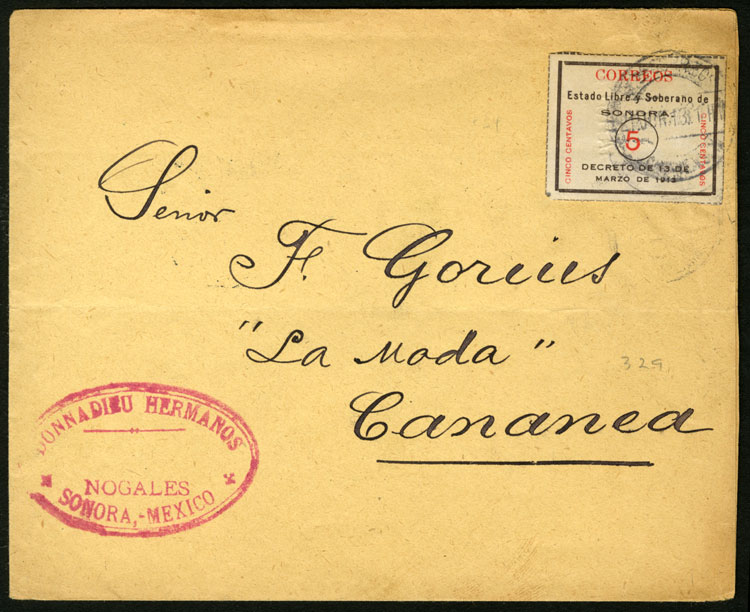 CORREOS
Estado Libre y Soberano de
SONORA
CINCO CENTAVOS
5
CINCO CENTAVOS
DECRETO DE 13 DE
MARZO DE 1913
Señor
F. Gorius
"La Moda"
329
Cananea
DONNADIEU HERMANOS
NOGALES
SONORA,-MEXICO